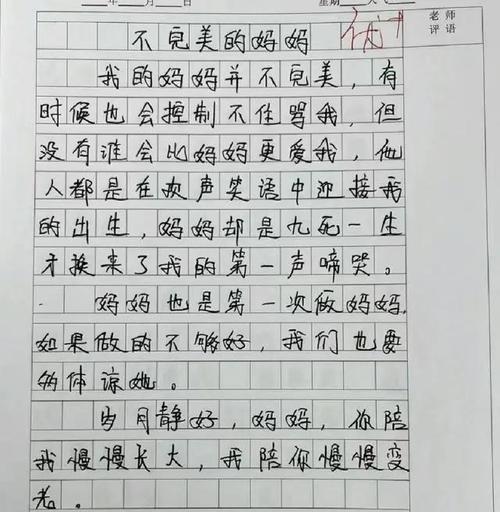 年 月 日 星期
老师
评语
不完美的妈妈
我的妈妈并不完美，有
时候也会控制不住骂我，但
没有谁会比妈妈更爱我，他
人都是在欢声笑语中迎接我
的出生，妈妈却是九死一生
才换来了我的第一声啼哭。
妈妈也是第一次做妈妈，
如果做的不够好，我们也要
多体谅她。
岁月静好，妈妈，你陪
我慢慢长大，我陪你慢慢变
老。